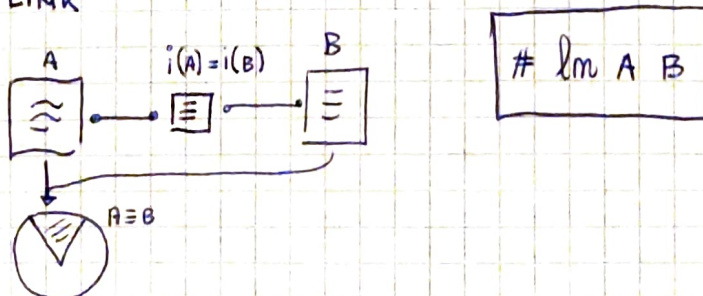 LINK
A
i(A) = i(B)
B
# ln A B
A ≡ B